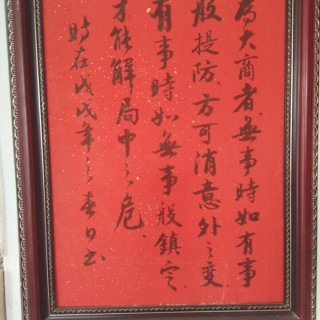 為大商者無事時如有事
般提防方可消意外之變
有事時如無事般鎮定
才能解局中之危
時在戊戌年之春日書